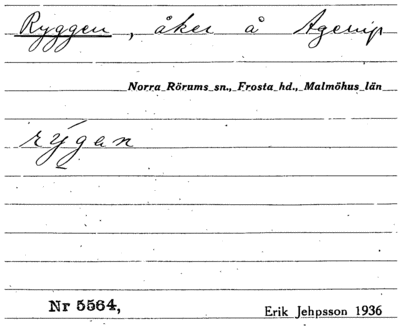 Ryggen, åker å Agerup
Norra Rörums sn., Frosta hd., Malmöhus län
rýgan
Nr 5564,
Erik Jehpsson 1936